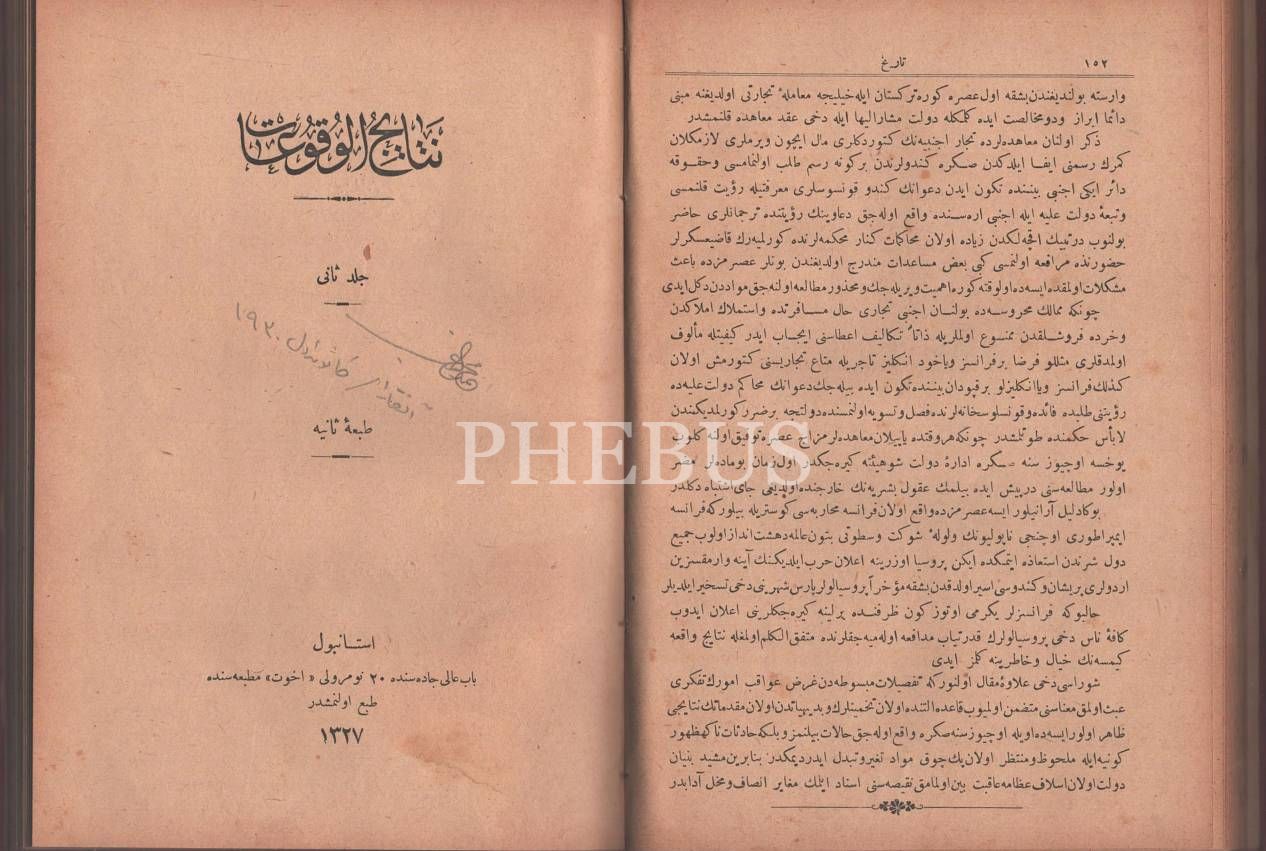 ١٥٢
تاریخ
وارسته بولندیغندن بشقه اول عصره كوره تركستان ایله خیلیجه معاملهٔ تجارتی اولدیغنه مبنی
دائما ابراز ودو مخالصت ایده كلمكله دولت مشارالیها ایله دخی عقد معاهده قلنمشدر
ذكر اولنان معاهده‌لرده تجار اجنبیه‌نك كتوردكلری مال ایچون ویرملری لازمكلان
كمرك رسمنی ایفا ایلدكدن صكره كندولرندن بركونه رسم طلب اولنمامسی وحقوقه
دائر ایكی اجنبی بیننده تكون ایدن دعوانك كندو قونسوسلری معرفتیله رؤیت قلنمسی
وتبعهٔ دولت علیه ایله اجنبی اره‌سنده واقع اوله‌جق دعاوینك رؤیتنده ترجمانلری حاضر
بولنوب درتبیك اقچه‌لكدن زیاده اولان محاكمات كنار محكمه‌لرنده كورلمیه‌رك قاضیعسكرلر
حضورنده مرافعه اولنمسی كبی بعض مساعدات مندرج اولدیغندن بونلر عصرمزده باعث
مشكلات اولمقده ایسه‌ده اولوقته كوره اهمیت ویریله‌جك ومحذور مطالعه اولنه‌جق مواددن دكل ایدی
چونكه ممالك محروسه‌ده بولنان اجنبی تجاری حال مسافرتده واستملاك املاكدن
وخرده فروشلقدن ممنوع اولملریله ذاتاً تكالیف اعطاسنی ایجاب ایدر كیفیتله مألوف
اولمدقلری مثللو فرضا برفرانسز ویاخود انكلیز تاجریله متاع تجاریسنی كتورمش اولان
كذلك فرانسز ویاانكلیزلو برقپودان بیننده تكون ایده بیله‌جك دعوانك محاكم دولت علیه‌ده
رؤیتنی طلبده فائده وقونسلوسخانه‌لرنده فصل وتسویه اولنمسنده دولتجه برضرر كورلمدیكندن
لابأس حكمنده طوتلمشدر چونكه هروقتده یاپیلان معاهده‌لر مزاج عصره توفیق اولنه كلوب
یوخسه اوچیوز سنه صكره ادارهٔ دولت شوهیئته كیره‌جكدر اول زمان بوماده‌لر مضر
اولور مطالعه‌سنی درپیش ایده بیلمك عقول بشریه‌نك خارجنده اولدیغی جای اشتباه دكلدر
بوكا دلیل آرانیلور ایسه عصرمزده واقع اولان فرانسه محاربه‌سی كوستریله بیلوركه فرانسه
ایمپراطوری اوچنجی ناپولیونك ولولهٔ شوكت وسطوتی بتون عالمه دهشت انداز اولوب جمیع
دول شرندن استعاذه ایتمكده ایكن پروسیا اوزرینه اعلان حرب ایلدیكنك آینه وارمقسزین
اردولری پریشان وكندوسی اسیر اولدقدن بشقه مؤخراً پروسیالولر پارس شهرینی دخی تسخیر ایلدیلر
حالبوكه فرانسزلر یكرمی اوتوز كون ظرفنده برلینه كیره‌جكلرینی اعلان ایدوب
كافهٔ ناس دخی پروسیالولرك قدر تیاب مدافعه اوله‌میه‌جقلرنده متفق الكلم اولمغله نتایج واقعه
كیمسه‌نك خیال وخاطرینه كلمز ایدی
شوراسی دخی علاوهٔ مقال اولنوركه تفصیلات مبسوطه‌دن غرض عواقب امورك تفكری
عبث اولمق معناسنی متضمن اولمیوب قاعده التنده اولان تخمیناتك وبدیهیاتدن اولان مقدماتك نتایجی
ظاهر اولور ایسه‌ده اویله اوچیوز سنه صكره واقع اوله‌جق حالات بیلنمز وبلكه حادثات ناكهظهور
كونیه ایله ملحوظ ومنتظر اولان پك چوق مواد تغیر وتبدل ایدر دیمكدر بنابرین مشید بنیان
دولت اولان اسلاف عظامه عاقبت بین اولمامق نقیصه‌سنی اسناد ایتمك مغایر انصاف ومخل آدابدر
نتایج الوقوعات
جلد ثانی
١٩٣٠
طبعهٔ ثانیه
استانبول
باب عالی جاده‌سنده ٢٠ نومرولی «اخوت» مطبعه‌سنده
طبع اولنمشدر
١٣٢٧
PHEBUS